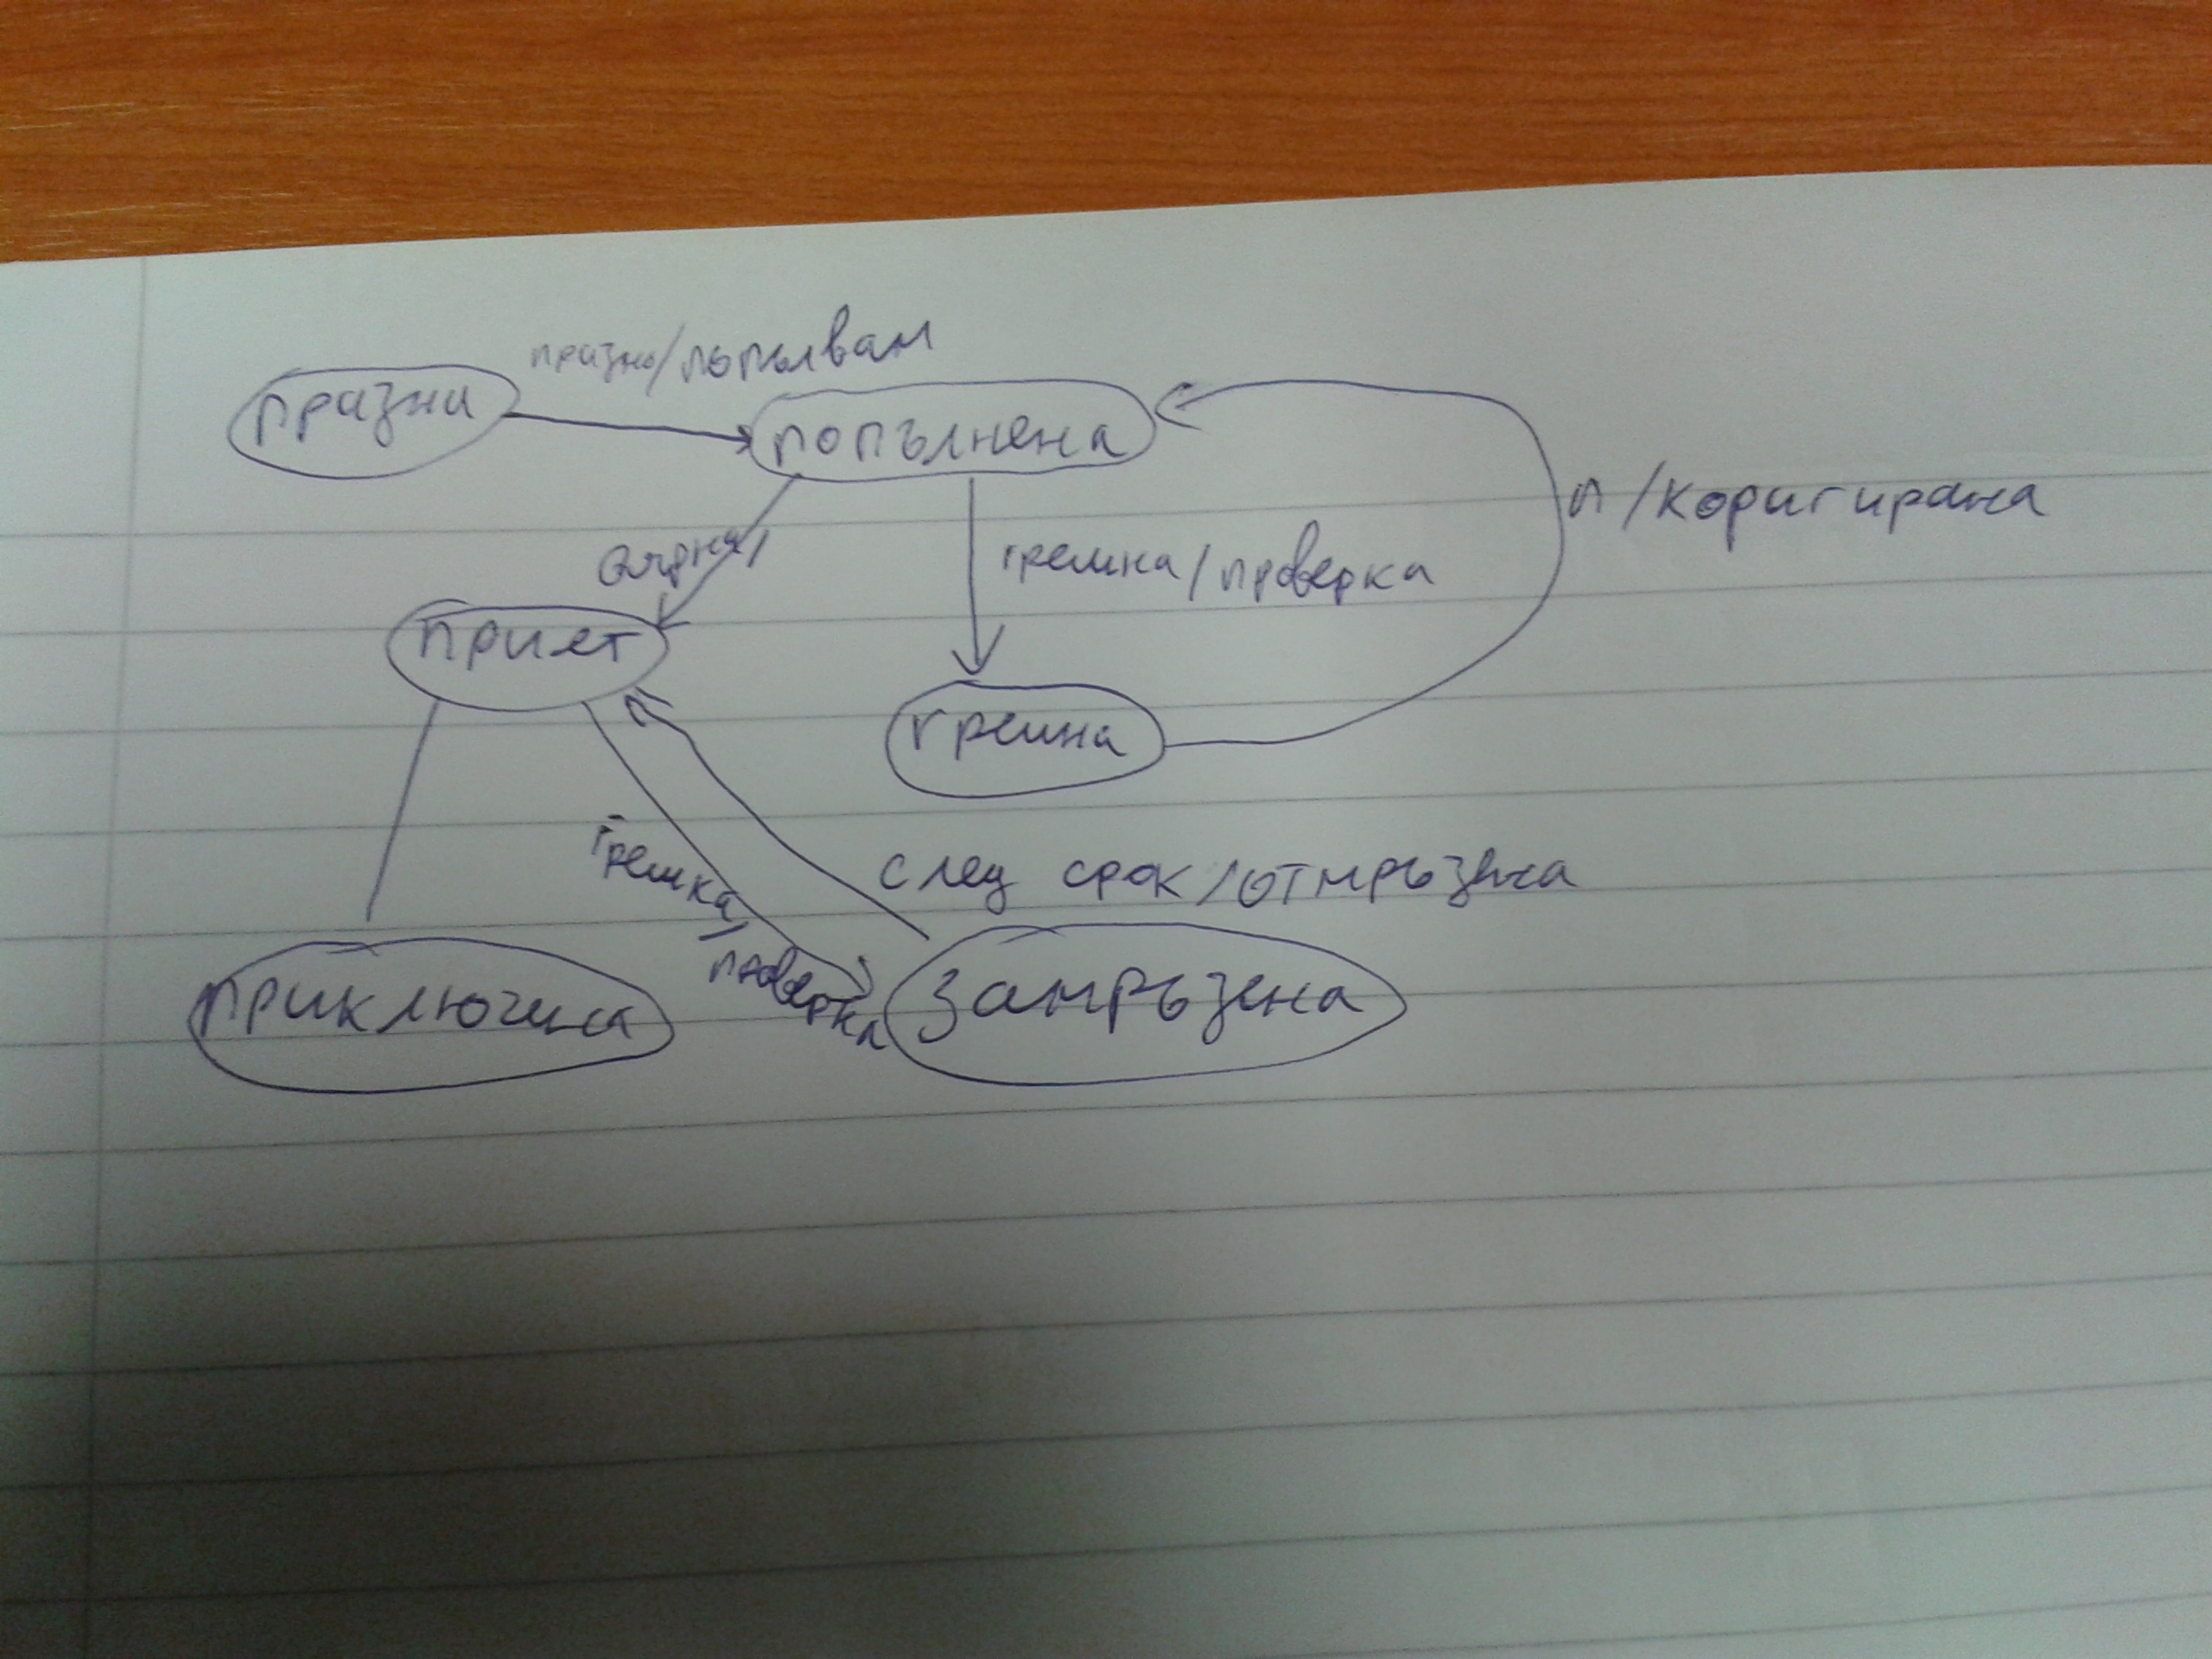 празно/попълвам
празна
попълнена
п/коригирана
грешка/проверка
приет
грешна
грешка/
проверка
след срок/отмръзена
приключена
замръзена